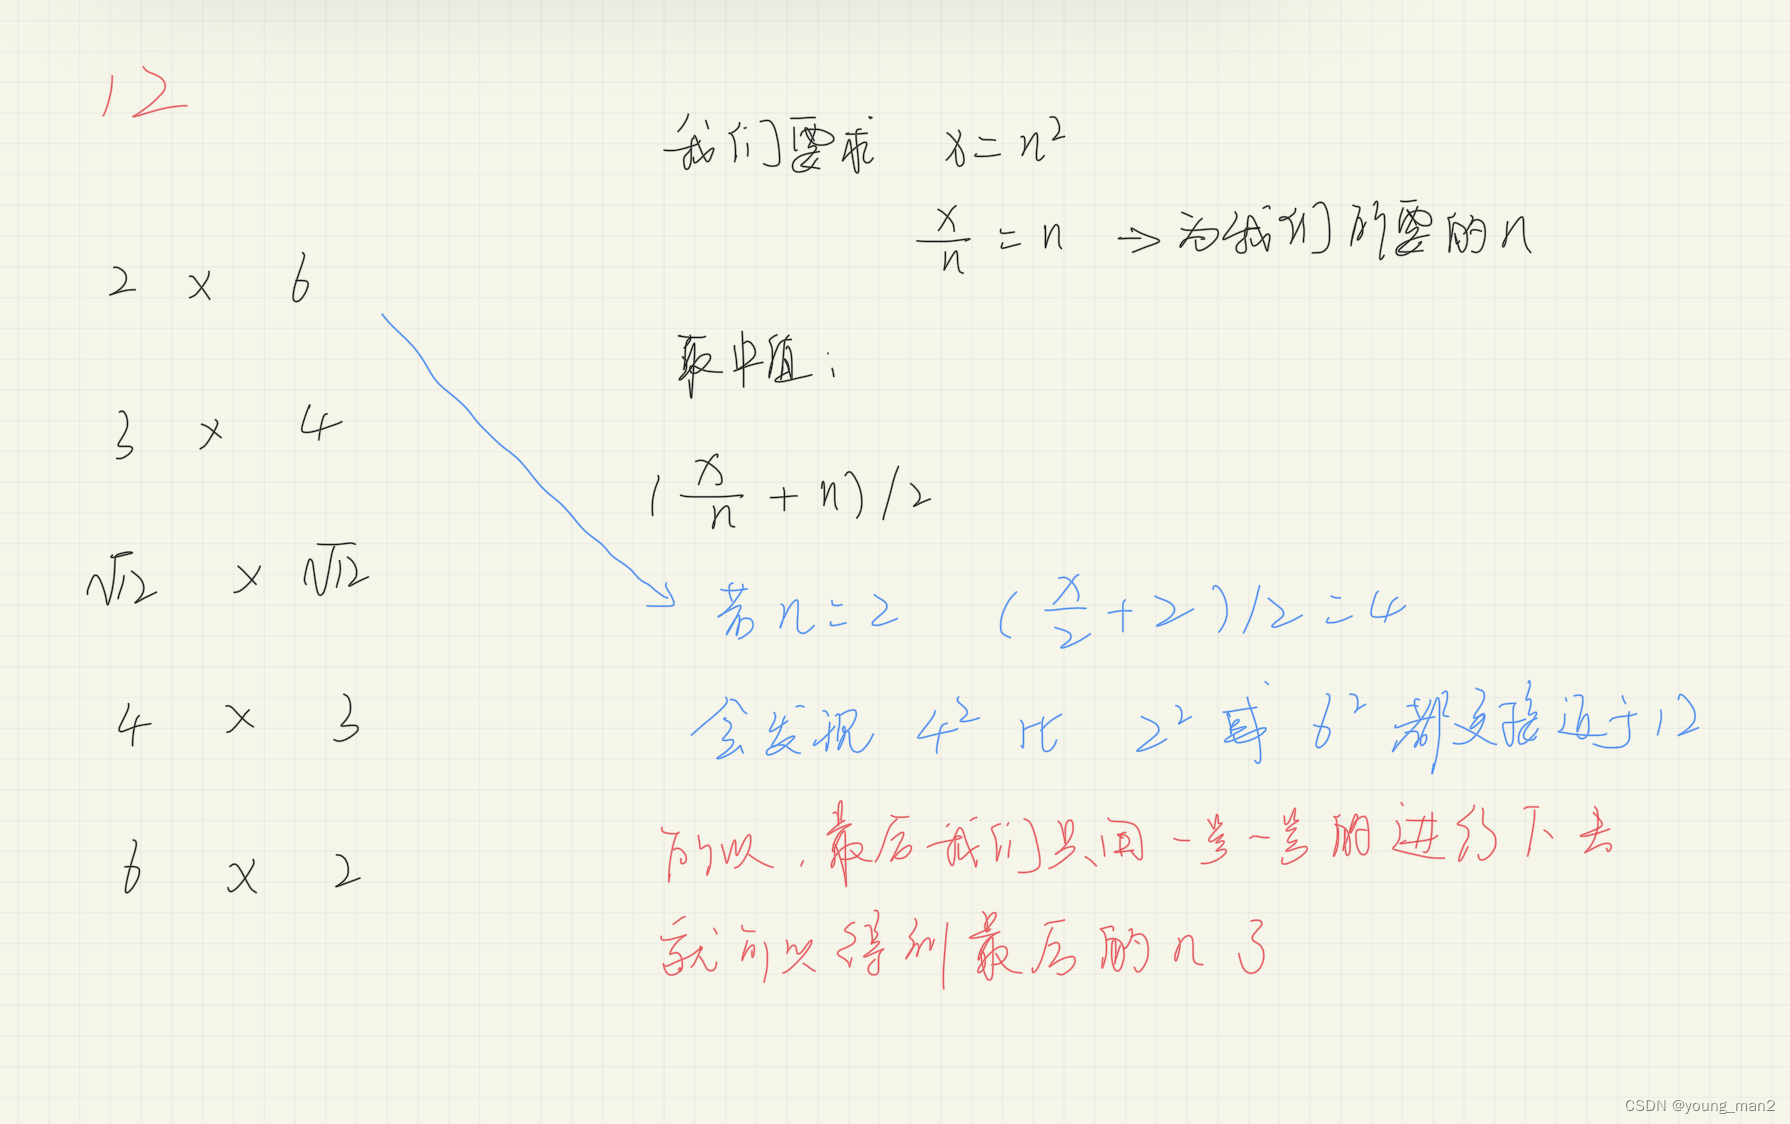 12
2 x 6
3 x 4
√12 x √12
4 x 3
6 x 2
我们要求 x=n²
x/n = n → 为我们所要的n
取中值：
(x/n + n)/2
若n=2 (x/2 + 2)/2=4
会发现 4² 比 2² 或 6² 都更接近于12
所以，最后我们只用一步一步的进行下去
就可以得到最后的n了
CSDN @young_man2